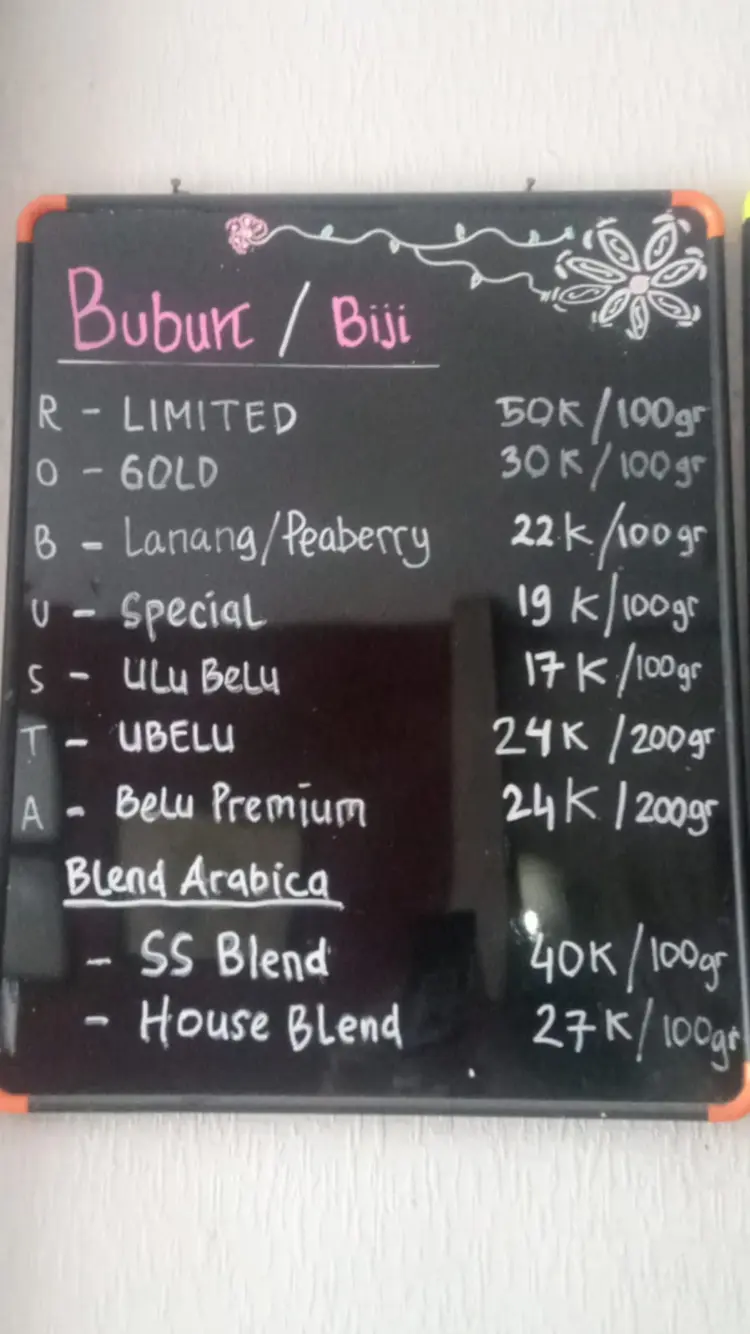 Bubuk / Biji
R - LIMITED 50K/100gr
O - GOLD 30K/100gr
B - Lanang/Peaberry 22K/100gr
U - Special 19K/100gr
S - ULu BeLu 17K/100gr
T - UBELU 24K/200gr
A - BeLu Premium 24K/200gr
Blend Arabica
- SS Blend 40K/100gr
- House BLend 27K/100gr